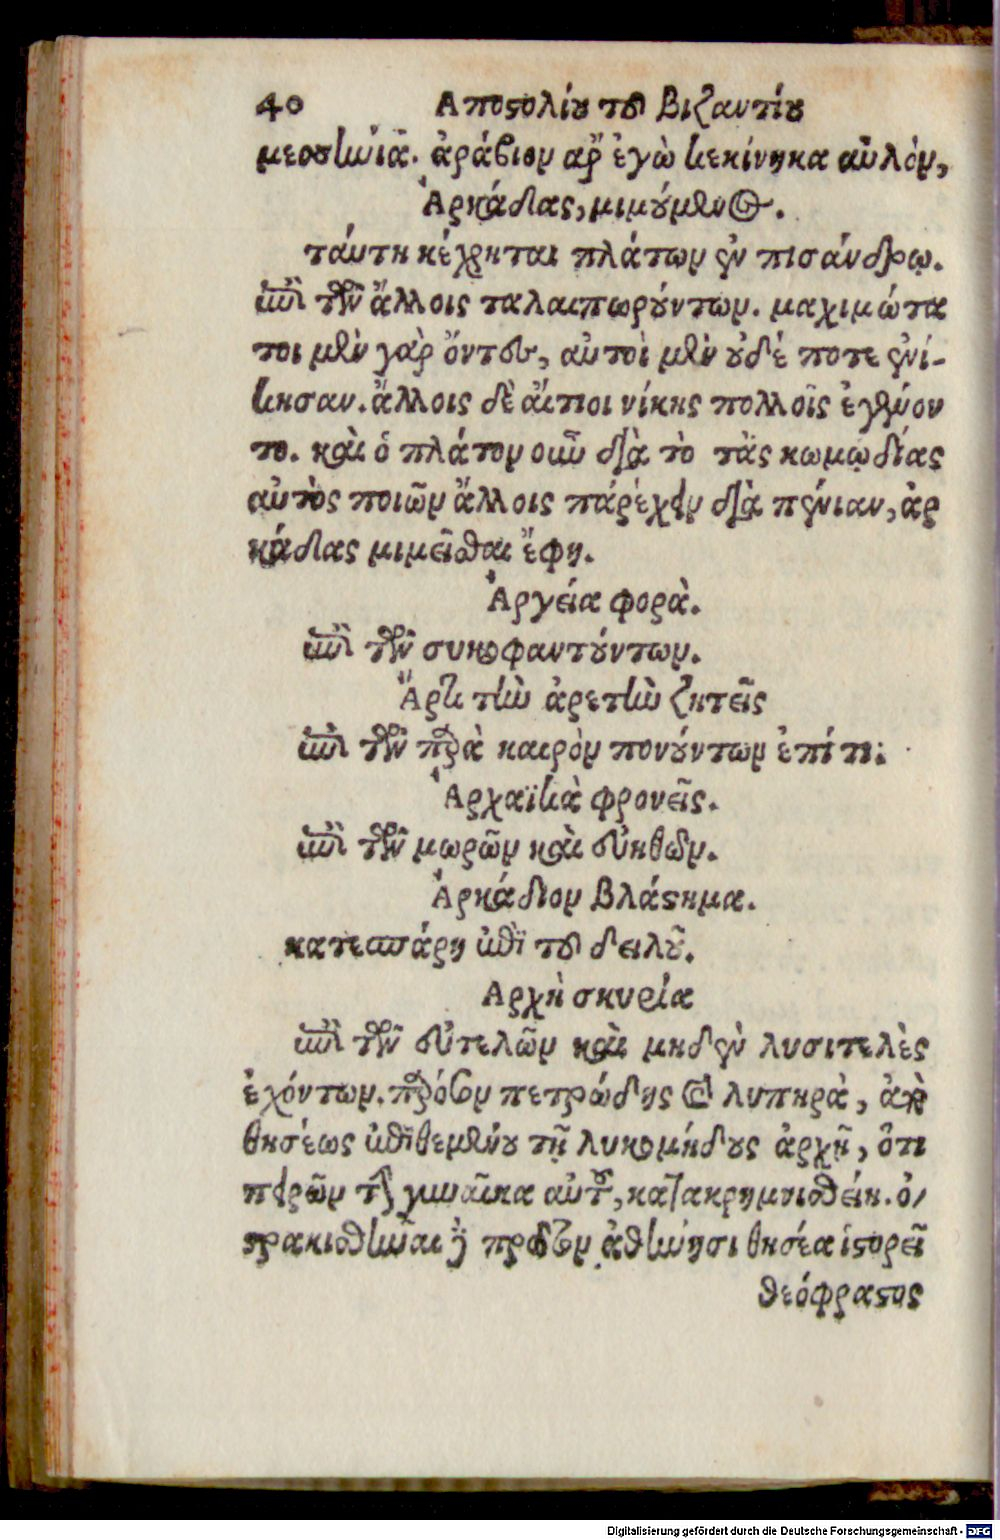 40 Αποστολίου τοῦ βιζαντίου
μεσσηνία. ἀράβιον ἄρ' ἐγὼ κεκίνηκα αὐλὸν,
Ἀρκάδας, μιμούμενος.
ταύτη κέχρηται πλάτων ἐν πισάνδρῳ.
ἐπὶ τῶν ἄλλοις ταλαιπωρούντων. μαχιμώτα
τοι μὲν γὰρ ὄντες, αὐτοὶ μὲν οὐδέ ποτε ἐνί-
κησαν. ἄλλοις δὲ αἴτιοι νίκης πολλοῖς ἐγένον
το. καὶ ὁ πλάτον οὖν διὰ τὸ τὰς κωμῳδίας
αὐτὸς ποιῶν ἄλλοις πάρέχειν διὰ πενίαν, ἀρ
κάδας μιμεῖσθαι ἔφη.
Ἀργεία φορὰ.
ἐπὶ τῶν συκοφαντούντων.
Ἄρτι τὴν ἀρετὴν ζητεῖς
ἐπὶ τῶν παρὰ καιρὸν πονούντων ἐπί τι.
Ἀρχαϊκὰ φρονεῖς.
ἐπὶ τῶν μωρῶν καὶ εὐηθῶν.
Ἀρκάδιον βλάστημα.
κατεσπάρη ἐπὶ τοῦ δειλοῦ.
Αρχὴ σκυρία
ἐπὶ τῶν εὐτελῶν καὶ μηδὲν λυσιτελὲς
ἐχόντων. παρόσον πετρώδης καὶ λυπηρὰ, ἀπὸ
θησέως ἐπιθεμένου τῇ λυκομήδους ἀρχῇ, ὅτι
πειρῶν τὴν γυναῖκα αὐτοῦ, κατακρημνισθείη. ὀ-
στρακισθῆναι δὲ πρῶτον ἀθήνησι θησέα ἱστορεῖ
θεόφραστος
Digitalisierung gefördert durch die Deutsche Forschungsgemeinschaft - DFG